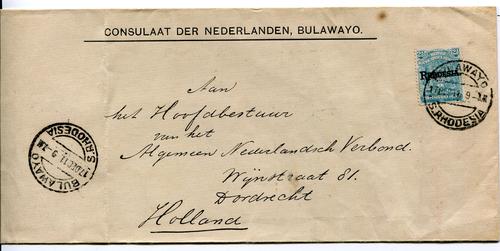 CONSULAAT DER NEDERLANDEN, BULAWAYO.
RHODESIA.
BULAWAYO
S.RHODESIA
Aan
het Hoofdbestuur
van het
Algemeen Nederlandsch Verbond.
Wijnstraat 81.
Dordrecht
Holland
BULAWAYO
17 DEC 11 9-AM
S.RHODESIA